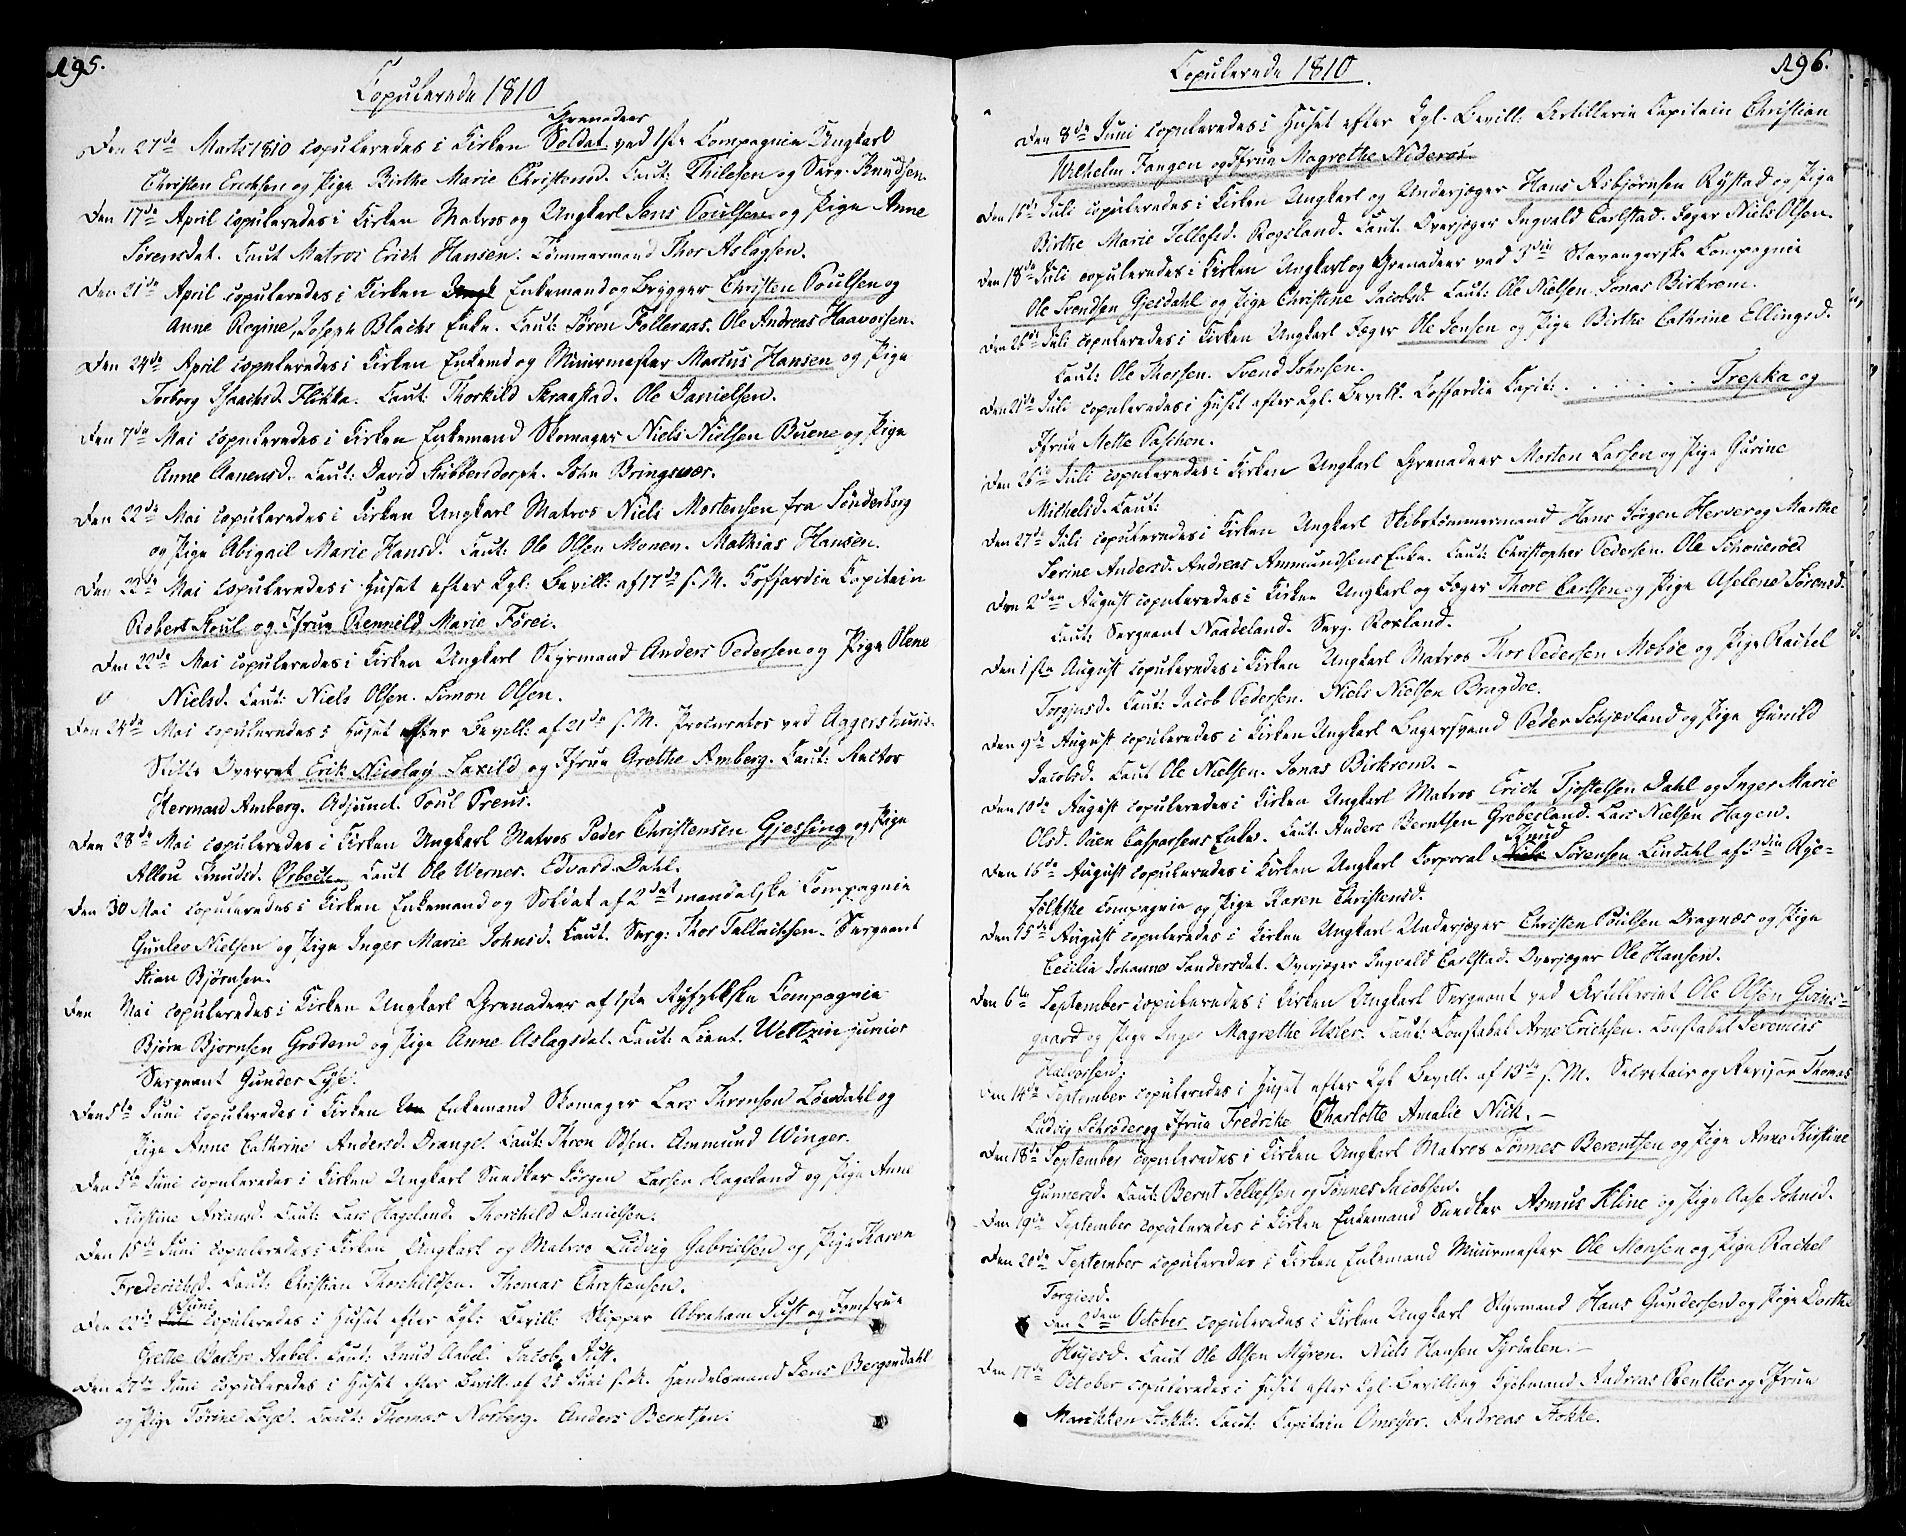 195.
Copulerede 1810
Grenadeer
Den 27de Marts 1810 copuleredes i Kirken Soldat ved 1ste Compagnie Ungkarl
Christen Erichsen og Pige Birthe Marie Christensd. Caut: Thilesen og Serg. Knudsen.
Den 17de April copuleredes i Kirken Matros og Ungkarl Jens Poulsen og Pige Anne
Sørensdat. Caut Matros Erich Hansen. Tømmermand Thor Aslagsen.
Den 21de April copuleredes i Kirken Ungk Enkemand og Brygger Christen Poulsen og
Anne Regine, Joseph Blachs Enke. Caut: Søren Folleraas. Ole Andreas Haavorsen.
Den 24de April copuleredes i Kirken Enkemd og Muurmester Marcus Hansen og Pige
Torborg Isaachsd. Flikka. Caut: Thorkild Skraastad. Ole Danielsen.
Den 7de Mai copuleredes i Kirken Enkemand Skomager Niels Nielsen Buene og Pige
Anne Aanensd. Caut: David Stubbendorph. John Bringsvær.
Den 22de Mai copuleredes i Kirken Ungkarl Matros Niels Mortensen fra Sønderborg
og Pige Abigail Marie Hansd. Caut: Ole Olsen Monen. Mathias Hansen.
Den 22de Mai copuleredes i Huset efter Kgl: Bevill: af 17de s. M. Koffardie Capitain
Robert Stoul og Jfrue Renneld Marie Førei.
Den 22de Mai copuleredes i Kirken Ungkarl Styrmand Anders Pedersen og Pige Olene
Nielsd. Caut: Niels Olsen. Simon Olsen.
Den 24de Mai copuleredes i Huset efter Bevill: af 21de s. M. Procurator ved Aggershuus
Stifts Overret Erik Nicolay Saxild og Jfrue Grethe Amberg. Caut: Rector
Herman Amberg. Adjunct. Poul Prens.
Den 28de Mai copuleredes i Kirken Ungkarl Matros Peder Christensen Gjessing og Pige
Allou Knudsd. Ørbech. Caut Ole Werner. Edvard Dahl.
Den 30 Mai copuleredes i Kirken Enkemand og Soldat af 2det mandalske Compagnie
Gunlev Nielsen og Pige Inger Marie Johnsd. Caut. Serg: Thor Tallachsen. Sergeant
Stian Bjørnsen.
Den Mai copuleredes i Kirken Ungkarl Grenadeer af 1ste Ryfylkske Compagnie
Bjørn Bjørnsen Grødem og Pige Anne Aslagsdat. Caut: Lieut. Weltzin junior
Sergeant Gunder Lyse.
Den 5te Juni copuleredes i Kirken Enkemand Skomager Lars Thronsen Löwdahl og
Pige Anne Cathrine Andersd. Drangs. Caut: Thron Olsen. Ammund Winger.
Den 5te Juni copuleredes i Kirken Ungkarl Snedker Jørgen Larsen Hageland og Pige Anne
Kirstine Ariansd. Caut: Lars Hageland. Thorchild Danielsen.
Den 15de Juni copuleredes i Kirken Ungkarl og Matros Ludvig Gabrielsen og Pige Karen
Fredericsd. Caut: Christian Thorchildsen. Thomas Christensen.
Juni
Den 22de copuleredes i Huset efter Kgl: Bevill: Skipper Abraham Just og Jomfrue
Grethe Aabel. Caut: Knud Aabel. Jacob Just.
Den 27de Juni copuleredes i Huset efter Bevill. af 25 Juni s. A. Handelsmand Jens Bergendahl
og Pige Tørine Lyse. Caut: Thomas Norberg. Anders Berntsen.
196.
Copulerede 1810
Den 8de Juni copuleredes i Huset efter Kgl. Bevill: Artillerie Capitain Christian
Wilhelm Tangen og Jfrue Magrethe Nideros.
Den 16de Juli copuleredes i Kirken Ungkarl og Underjæger Hans Asbjørnsen Rystad og Pige
Birthe Marie Tellefsd. Rogsland. Caut. Overjæger Ingvald Carlstad. Jæger Niels Olsen.
Den 18de Juli copuleredes i Kirken Ungkarl og Grenadeer ved Stavangerske Compagnie
Ole Svendsen Gjesdahl og Pige Christine Jacobsd. Caut: Ole Nielsen. Jonas Birkrem.
Den 26de Juli copuleredes i Kirken Ungkarl Jæger Ole Jensen og Pige Birthe Cathrine Ellingsd.
Caut: Ole Thorsen. Svend Johnsen.
Den 21de Juli copuleredes i Huset efter Kgl. Bevill. Coffardie Capit: . . . . . . . Trepka og
Jfrue Mette Paschen.
Den 26de Juli copuleredes i Kirken Ungkarl Grenadeer Morten Larsen og Pige Gurine
Mikkelsd. Caut:
Den 27de Juli copuleredes i Kirken Ungkarl Skibstømmermand Hans Jørgen Herver og Marthe
Serine Andersd. Andreas Ammundsens Enke. Caut: Christopher Pedersen. Ole Schouerøe
Den 2den August copuleredes i Kirken Ungkarl og Jæger Thore Carlsen og Pige Aselene Sørensd.
Caut: Sergeant Naadeland. Serg. Roxland.
Den 1ste August copuleredes i Kirken Ungkarl Matros Thor Pedersen Mebøe og Pige Rachel
Torjusd. Caut: Jacob Pedersen. Niels Nielsen Bragdøe.
Den 9de August copuleredes i Kirken Ungkarl Bagersvend Peder Schjærland og Pige Gunild
Jacobsd. Caut Ole Nielsen. Jonas Birkrem. -
Den 10de August copuleredes i Kirken Ungkarl Matros Erich Fjostelsen Dahl og Inger Marie
Olsd. Svein Casparsens Enke. Caut: Anders Berntsen Greberland. Lars Nielsen Hagen.
Knud
Den 16de August copuleredes i Kirken Ungkarl Corporal Niels Sørensen Lindahl af Rye-
fylkske Compagnie og Pige Karen Christensd.
Den 15de August copuleredes i Kirken Ungkarl Underjæger Christen Poulsen Dragnæs og Pige
Cecilia Johanne Sandersdat. Overjæger Ingvald Carlstad. Overjæger Ole Hansen.
Den 6te September copuleredes i Kirken Ungkarl Sergeant ved Artilleriet Ole Olsen Griins-
gaard og Pige Inger Magrethe Usler. Caut: Constabel Arne Erichsen. Constabel Jeremias
Halvorsen.
Den 14de September copuleredes i Huset efter Kgl Bevill. af 13de s. M. Secretair og Revisor Thomas
Ludvig Schrøder og Jfrue Fredrike Charlotte Amalie Nick. -
Den 18de September copuleredes i Kirken Ungkarl Matros Tønnes Berentsen og Pige Anne Kirstine
Gunnersd. Caut: Bernt Tellefsen og Tønnes Jacobsen.
Den 19de September copuleredes i Kirken Enkemand Snedker Asmus Kline og Pige Aase Johnsd.
Den 20de September copuleredes i Kirken Enkemand Muurmester Ole Monsen og Pige Rachel
Torgiesd.
Den 2den October copuleredes i Kirken Ungkarl Styrmand Hans Gundersen og Pige Dorthe
Hoyesd. Caut Ole Olsen Myren. Niels Hansen Syrdalen. -
Den 17de October copuleredes i Huset efter Kgl. Bevilling Kjøbmand Andreas Rentler og Jfrue
Marikken Fokke. Caut: Capitain Omeyer. Andreas Fokke.